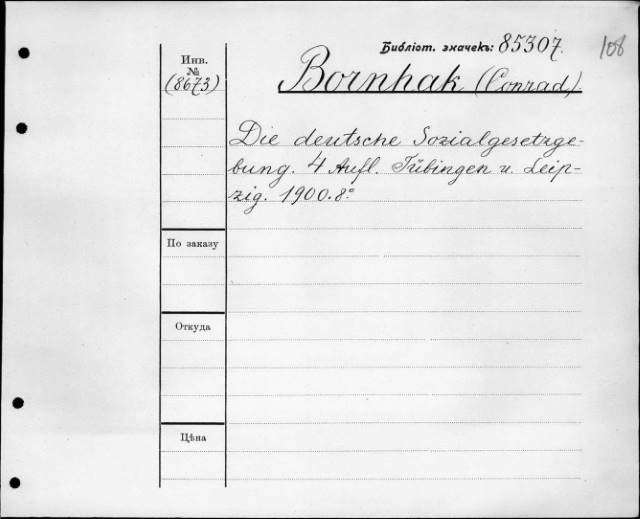 Библіот. значекъ: 85307. 108
Инв.
№
(8673)
Bornhak (Conrad).
Die deutsche Sozialgesetzge-
bung. 4 Aufl. Tübingen u. Leip-
zig. 1900. 8º
По заказу
Откуда
Цѣна